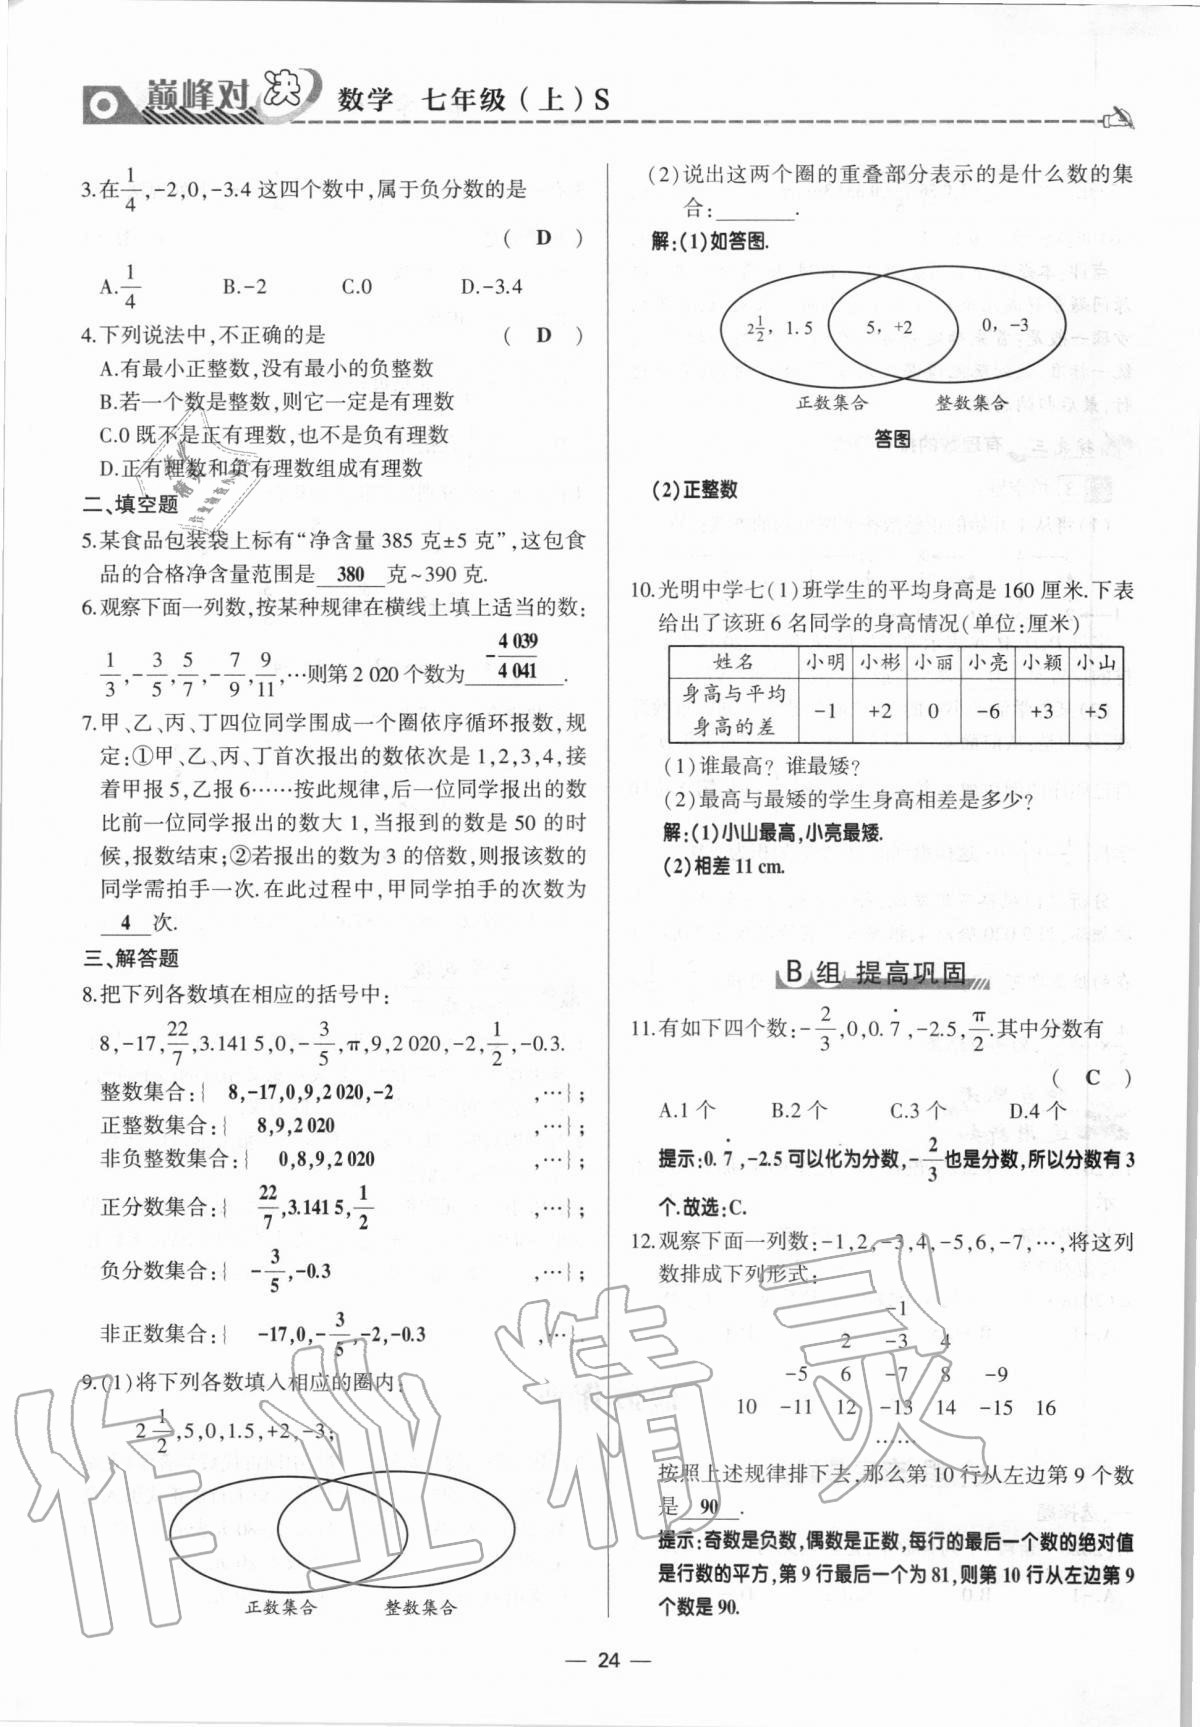 巅峰对决 数学 七年级(上)S
3.在1/4,-2,0,-3.4这四个数中,属于负分数的是
( D )
A.1/4 B.-2 C.0 D.-3.4
4.下列说法中,不正确的是 ( D )
A.有最小正整数,没有最小的负整数
B.若一个数是整数,则它一定是有理数
C.0既不是正有理数,也不是负有理数
D.正有理数和负有理数组成有理数
二、填空题
5.某食品包装袋上标有“净含量385克±5克”,这包食
品的合格净含量范围是 380 克~390克.
6.观察下面一列数,按某种规律在横线上填上适当的数:
1/3,-3/5,5/7,-7/9,9/11,…则第2 020个数为 -4 039/4 041 .
7.甲、乙、丙、丁四位同学围成一个圈依序循环报数,规
定:①甲、乙、丙、丁首次报出的数依次是1,2,3,4,接
着甲报5,乙报6……按此规律,后一位同学报出的数
比前一位同学报出的数大1,当报到的数是50的时
候,报数结束;②若报出的数为3的倍数,则报该数的
同学需拍手一次.在此过程中,甲同学拍手的次数为
4 次.
三、解答题
8.把下列各数填在相应的括号中:
8,-17,22/7,3.141 5,0,-3/5,π,9,2 020,-2,1/2,-0.3.
整数集合:{ 8,-17,0,9,2 020,-2 ,…};
正整数集合:{ 8,9,2 020 ,…};
非负整数集合:{ 0,8,9,2 020 ,…};
正分数集合:{ 22/7,3.141 5,1/2 ,…};
负分数集合:{ -3/5,-0.3 ,…};
非正数集合:{ -17,0,-3/5,-2,-0.3 ,…}.
9.(1)将下列各数填入相应的圈内:
2 1/2,5,0,1.5,+2,-3;
正数集合 整数集合
(2)说出这两个圈的重叠部分表示的是什么数的集
合:______.
解:(1)如答图.
2 1/2, 1.5 5, +2 0, -3
正数集合 整数集合
答图
(2)正整数
10.光明中学七(1)班学生的平均身高是160厘米.下表
给出了该班6名同学的身高情况(单位:厘米)
姓名 小明 小彬 小丽 小亮 小颖 小山
身高与平均
身高的差 -1 +2 0 -6 +3 +5
(1)谁最高?谁最矮?
(2)最高与最矮的学生身高相差是多少?
解:(1)小山最高,小亮最矮.
(2)相差11 cm.
B组 提高巩固
11.有如下四个数:-2/3,0,0.7̇,-2.5,π/2.其中分数有
( C )
A.1个 B.2个 C.3个 D.4个
提示:0.7̇,-2.5可以化为分数,-2/3也是分数,所以分数有3
个.故选:C.
12.观察下面一列数:-1,2,-3,4,-5,6,-7,…,将这列
数排成下列形式:
-1
2 -3 4
-5 6 -7 8 -9
10 -11 12 -13 14 -15 16
……
按照上述规律排下去,那么第10行从左边第9个数
是 90 .
提示:奇数是负数,偶数是正数,每行的最后一个数的绝对值
是行数的平方,第9行最后一个为81,则第10行从左边第9
个数是90.
作业精灵
— 24 —